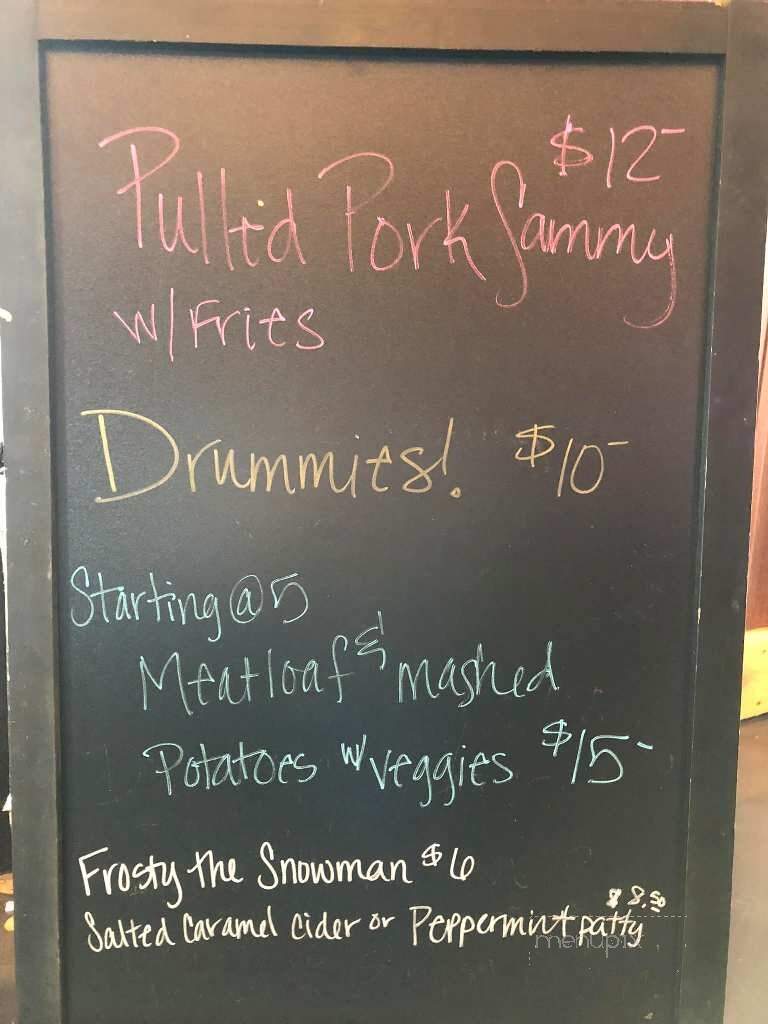 $12-
Pulled Pork Sammy
w/Fries
Drummies! $10-
Starting @ 5
Meatloaf & mashed
Potatoes w/ veggies $15-
Frosty the Snowman $6
$8.50
Salted Caramel Cider or Peppermint patty
menupix